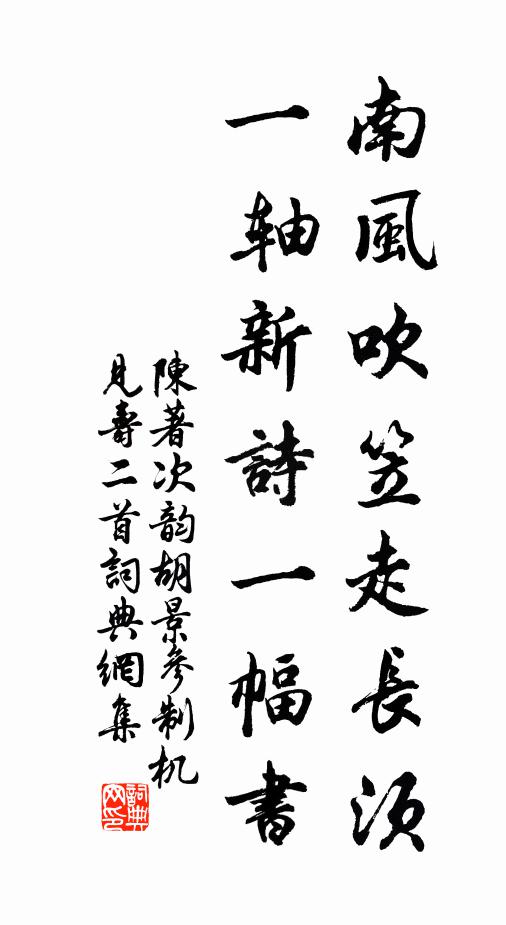 南風吹笠走長須
一軸新詩一幅書
陳著次韵胡景參制机
見壽二首詞典網集
詞典
网印